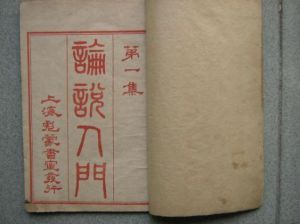 第一集
論說入門
上海彪蒙書室發行